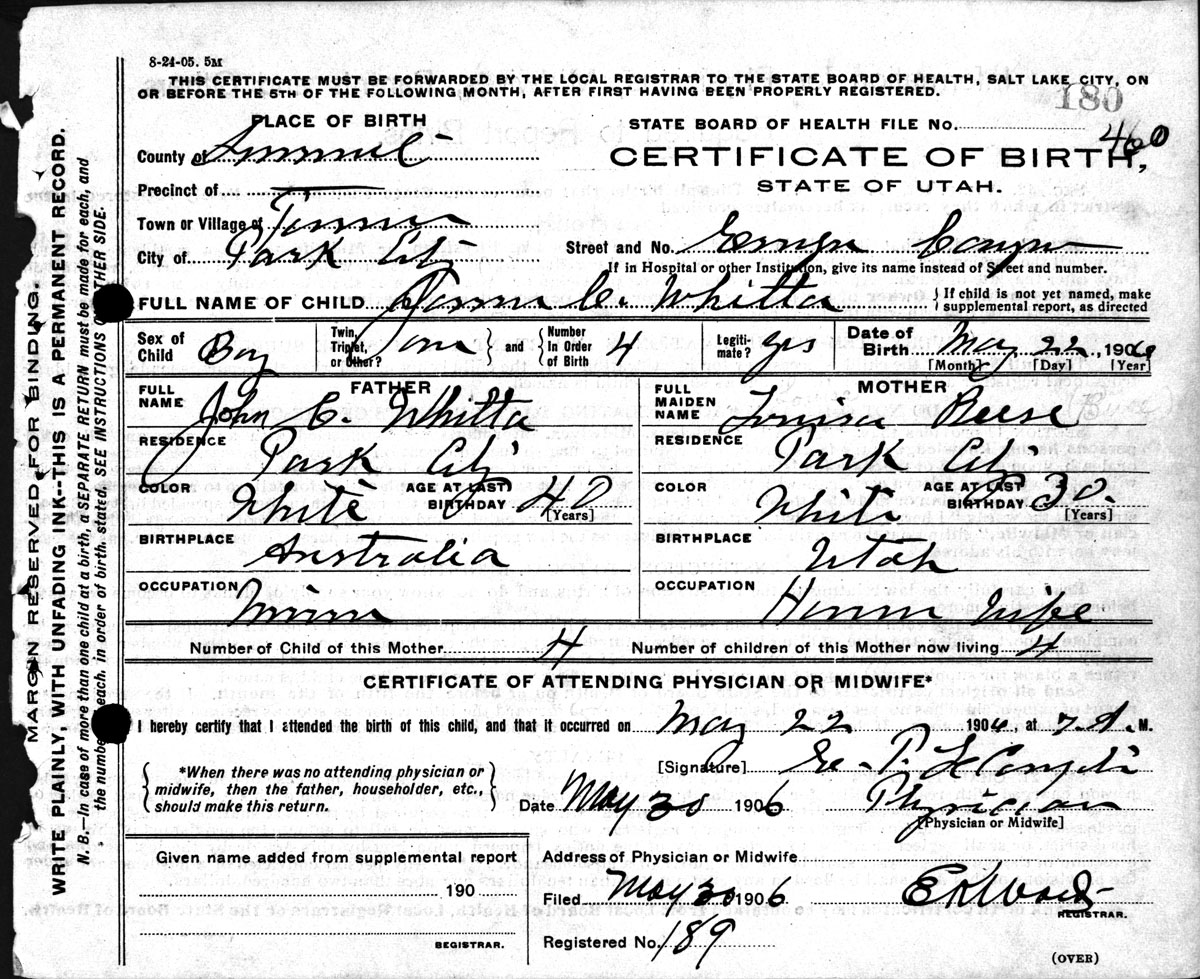 8-24-05. 5M
THIS CERTIFICATE MUST BE FORWARDED BY THE LOCAL REGISTRAR TO THE STATE BOARD OF HEALTH, SALT LAKE CITY, ON
OR BEFORE THE 5TH OF THE FOLLOWING MONTH, AFTER FIRST HAVING BEEN PROPERLY REGISTERED.
180
PLACE OF BIRTH
STATE BOARD OF HEALTH FILE No. 460
County of Summit
CERTIFICATE OF BIRTH,
STATE OF UTAH.
Precinct of
Town or Village of
City of Park City
Street and No.
If in Hospital or other Institution, give its name instead of Street and number.
FULL NAME OF CHILD C. Whitta
If child is not yet named, make
supplemental report, as directed
Sex of Child Boy
Twin, Triplet, or Other?
and
Number In Order of Birth 4
Legitimate? yes
Date of Birth May 22, 1906
[Month] [Day] [Year]
FATHER
FULL NAME John C. Whitta
RESIDENCE Park City
COLOR White
AGE AT LAST BIRTHDAY 40
[Years]
BIRTHPLACE Australia
OCCUPATION
MOTHER
FULL MAIDEN NAME Louisa Reese
RESIDENCE Park City
COLOR White
AGE AT LAST BIRTHDAY 30
[Years]
BIRTHPLACE Utah
OCCUPATION House Wife
Number of Child of this Mother 4
Number of children of this Mother now living 4
CERTIFICATE OF ATTENDING PHYSICIAN OR MIDWIFE*
I hereby certify that I attended the birth of this child, and that it occurred on May 22 1906, at 7 A. M.
*When there was no attending physician or
midwife, then the father, householder, etc.,
should make this return.
[Signature] E. P.
Date May 30 1906 Physician
[Physician or Midwife]
Given name added from supplemental report
190
REGISTRAR.
Address of Physician or Midwife
Filed May 30 1906
REGISTRAR.
Registered No. 189
(OVER)
MARGIN RESERVED FOR BINDING.
WRITE PLAINLY, WITH UNFADING INK--THIS IS A PERMANENT RECORD.
N. B.—In case of more than one child at a birth, a SEPARATE RETURN must be made for each, and
the number of each, in order of birth, stated. SEE INSTRUCTIONS ON OTHER SIDE.